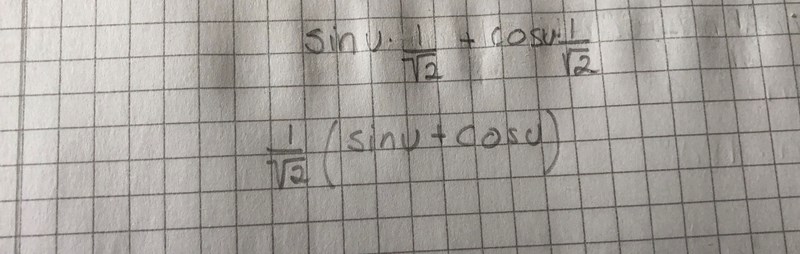 sin v · 1/√2 + cos v · 1/√2
1/√2 (sin v + cos v)